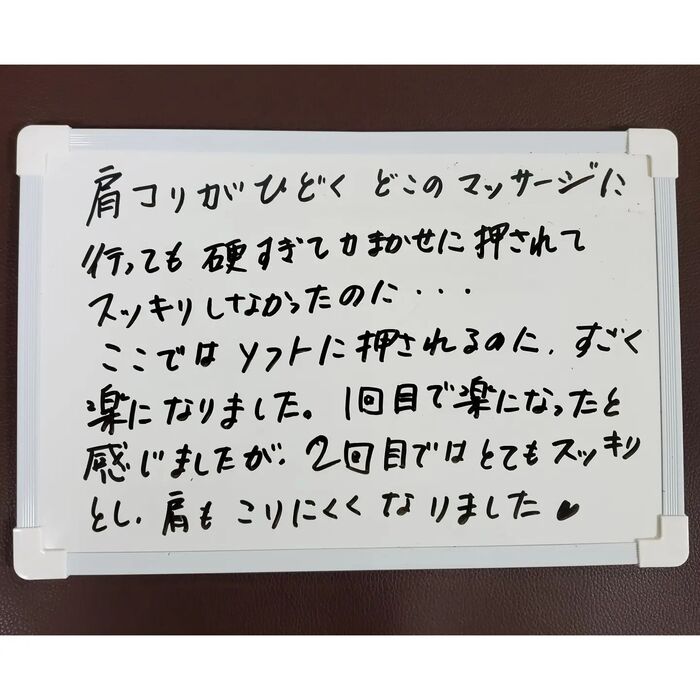 肩コリがひどく どこのマッサージに
行っても 硬すぎて力まかせに押されて
スッキリしなかったのに・・・
ここではソフトに押されるのに、すごく
楽になりました。1回目で楽になったと
感じましたが、2回目ではとてもスッキリ
とし、肩もこりにくくなりました♥